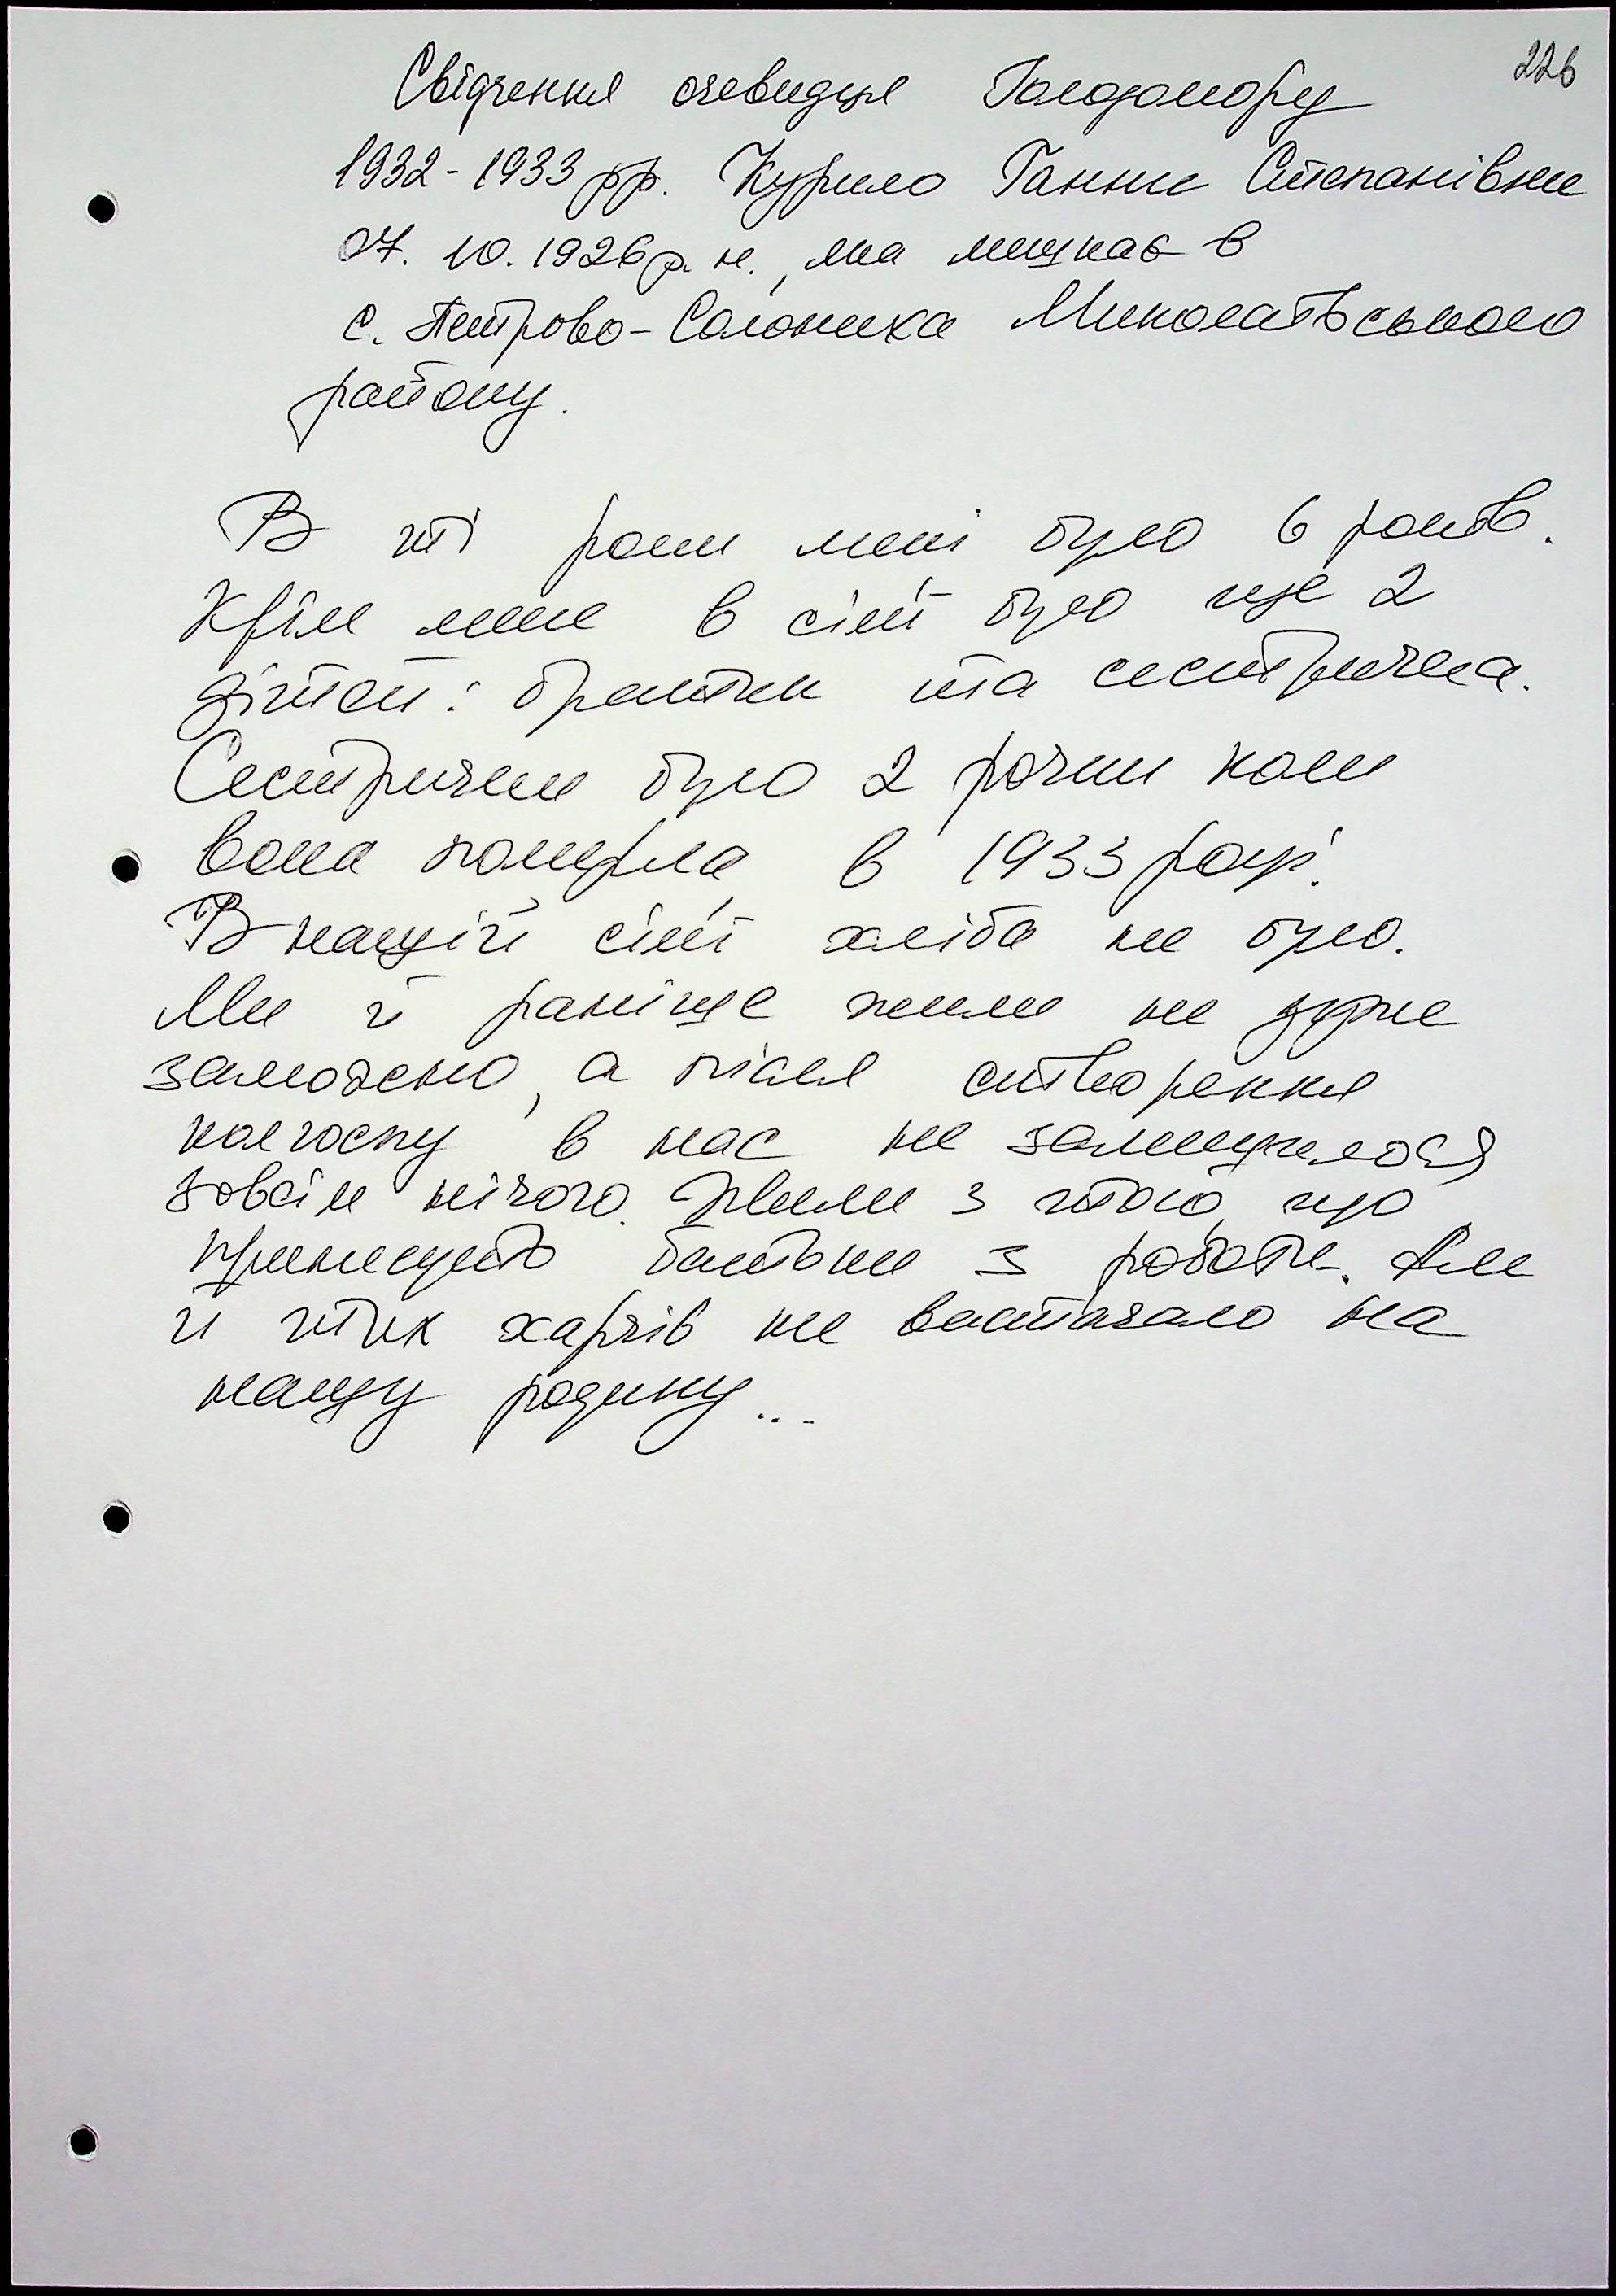 226
Свідчення очевидця Голодомору
1932-1933 рр. Курило Ганни Степанівни
07. 10. 1926 р. н., яка мешкає в
с. Петрово-Солониха Миколаївського
району.
В ті роки мені було 6 років.
Крім мене в сім'ї було ще 2
дітей: братик та сестричка.
Сестричці було 2 рочки коли
вона померла в 1933 році.
В нашій сім'ї хліба не було.
Ми й раніше жили не дуже
заможно, а після створення
колгоспу в нас не залишилося
зовсім нічого. Жили з того, що
принесуть батьки з роботи. Але
й тих харчів не вистачало на
нашу родину...